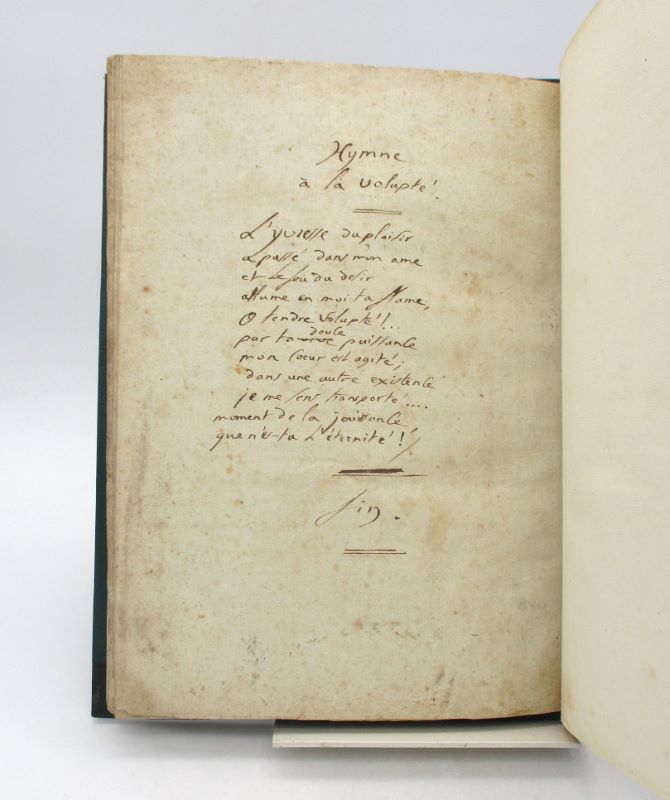 Hymne
à la volupté!
L'yvresse du plaisir
a passé dans mon ame
et le feu du desir
allume en moi ta flame,
O tendre volupté!...
par ta douce puissance
mon coeur est agité;
dans une autre existence
je me sens transporté....
moment de la jouissance
que n'es-tu L'éternité!
fin.